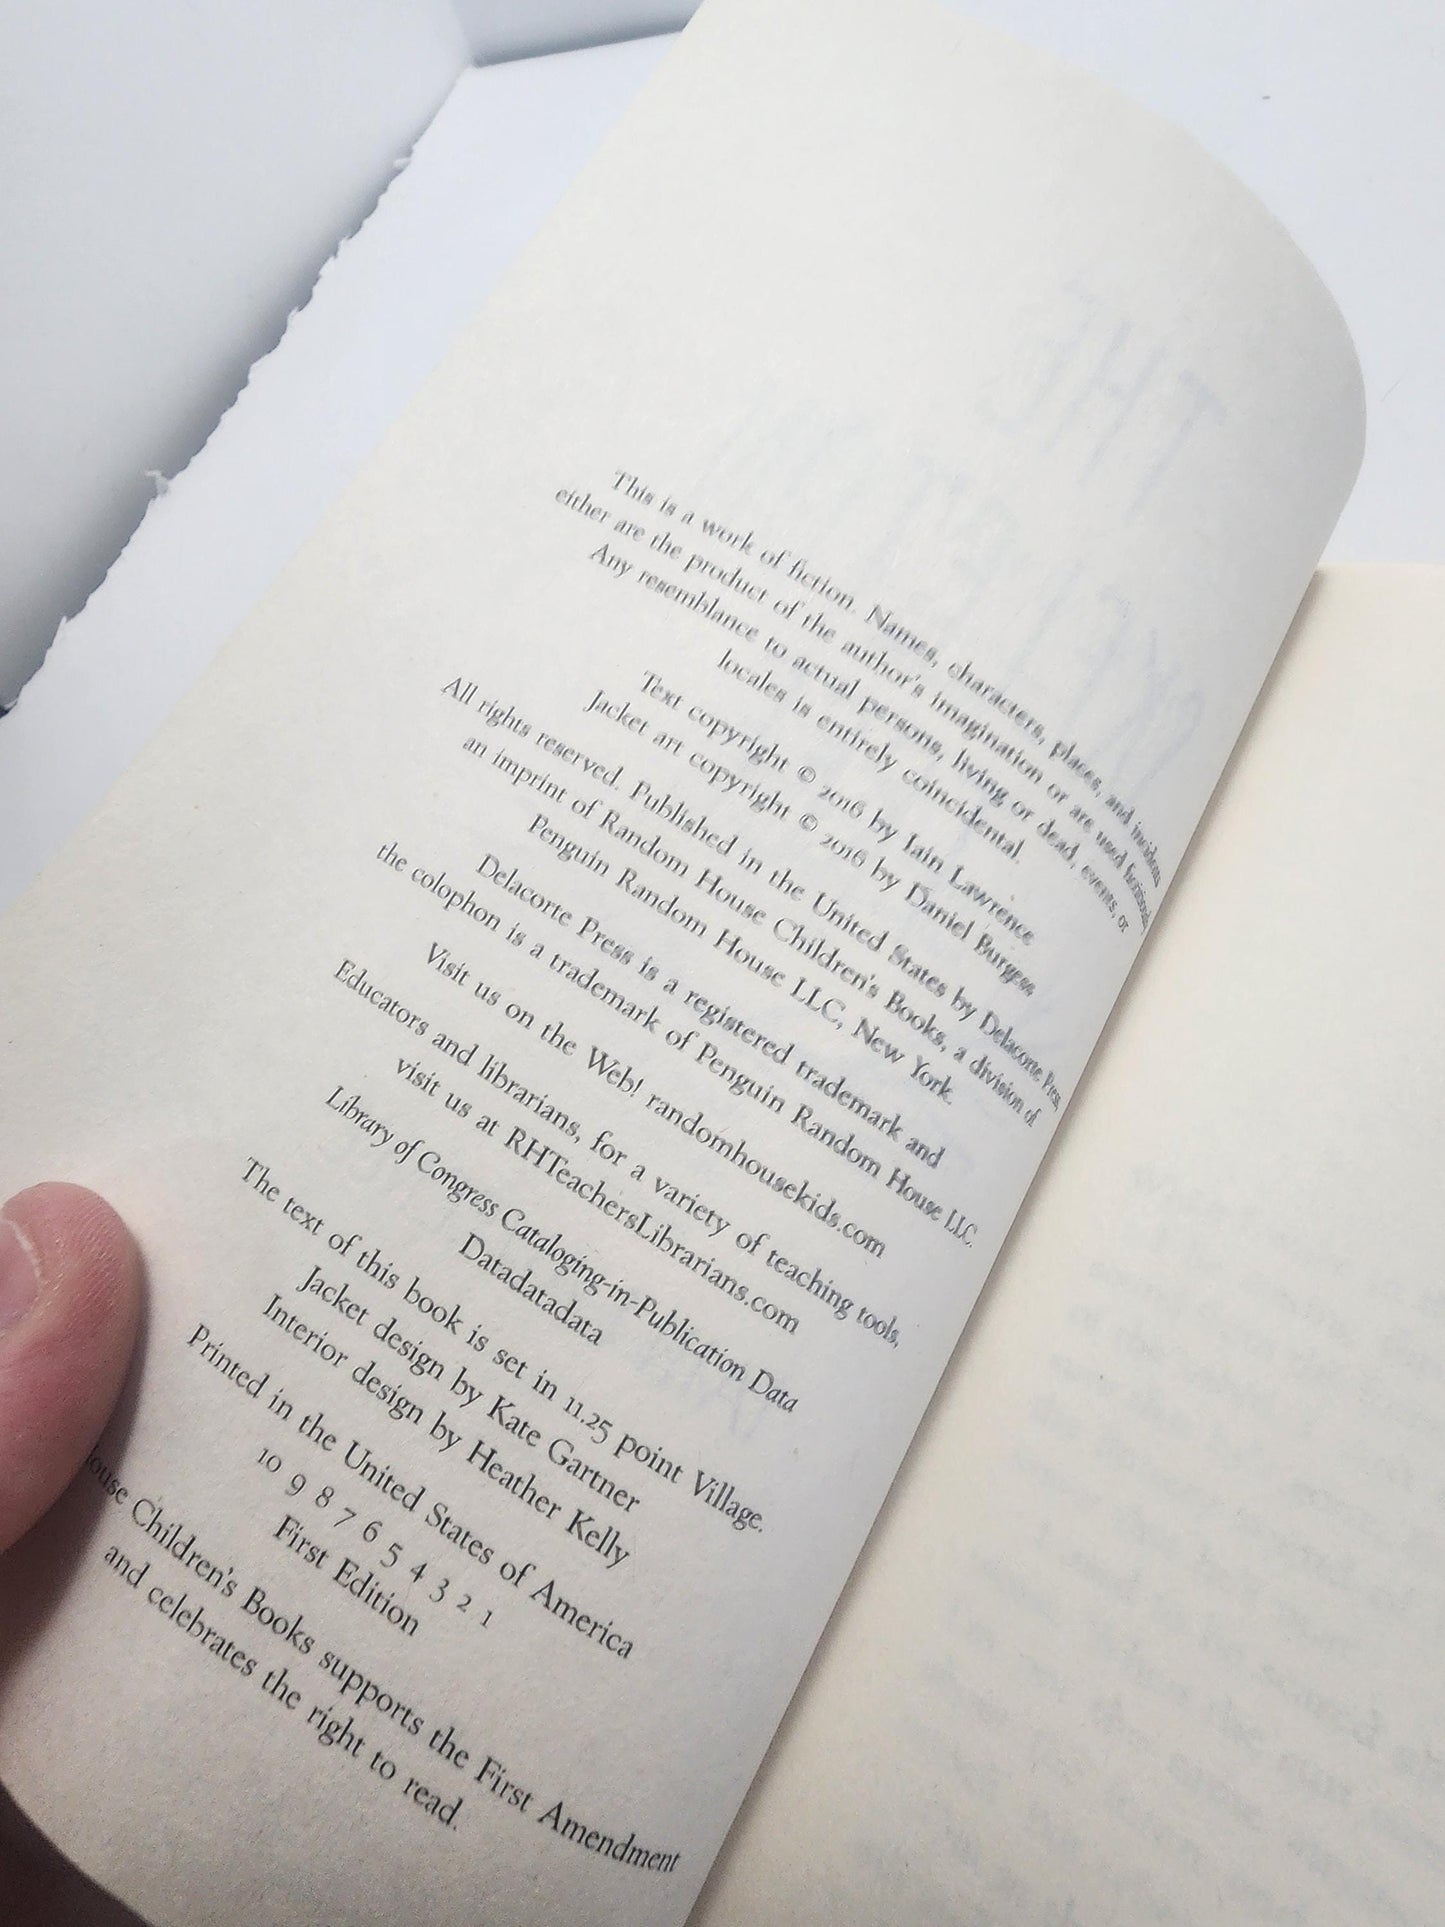 This is a work of fiction. Names, characters, places, and incidents
either are the product of the author's imagination or are used fictitiously.
Any resemblance to actual persons, living or dead, events, or
locales is entirely coincidental.
Text copyright © 2016 by Iain Lawrence
Jacket art copyright © 2016 by Daniel Burgess
All rights reserved. Published in the United States by Delacorte Press,
an imprint of Random House Children's Books, a division of
Penguin Random House LLC, New York.
Delacorte Press is a registered trademark and
the colophon is a trademark of Penguin Random House LLC.
Visit us on the Web! randomhousekids.com
Educators and librarians, for a variety of teaching tools,
visit us at RHTeachersLibrarians.com
Library of Congress Cataloging-in-Publication Data
Datadatadata
The text of this book is set in 11.25 point Village.
Jacket design by Kate Gartner
Interior design by Heather Kelly
Printed in the United States of America
10 9 8 7 6 5 4 3 2 1
First Edition
ouse Children's Books supports the First Amendment
and celebrates the right to read.